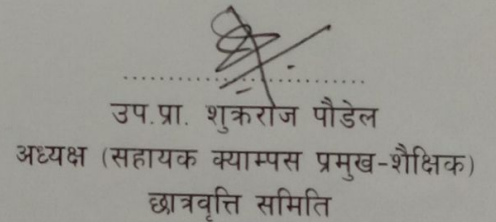 उप.प्रा. शुक्रराज पौडेल
अध्यक्ष (सहायक क्याम्पस प्रमुख-शैक्षिक)
छात्रवृत्ति समिति